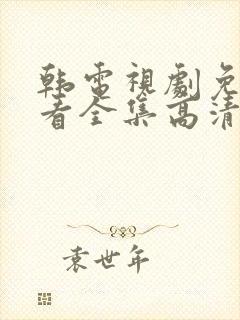 韩電視劇免
看全集高清
袁世年